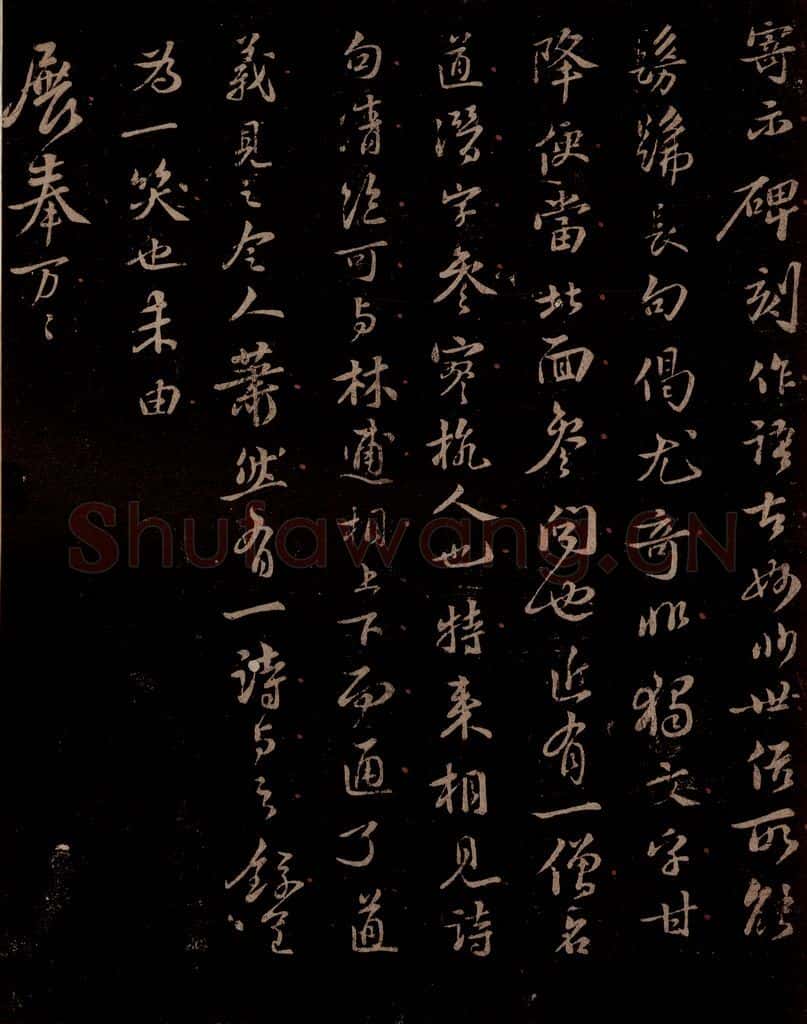 寄示碑刻作語古妙非世俗所能
髣髴長句偈尤奇非獨文字甘
降便當北面參問也近有一僧名
道潛字參寥杭人也特來相見詩
句清絕可与林逋相上下而通了道
義見之令人蕭然有一詩与之錄呈
為一笑也未由
展奉万〻
Shufawang.CN